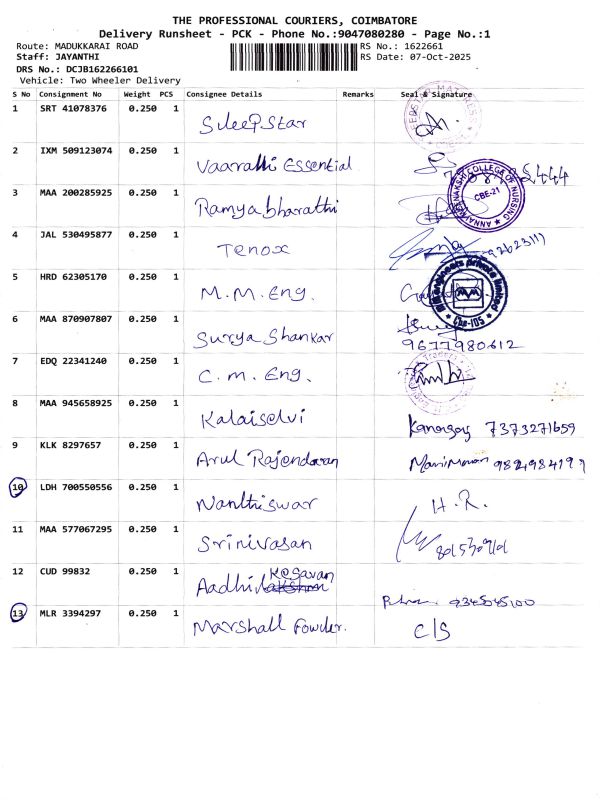 THE PROFESSIONAL COURIERS, COIMBATORE
Delivery Runsheet - PCK - Phone No.:9047080280 - Page No.:1
Route: MADUKKARAI ROAD RS No.: 1622661
Staff: JAYANTHI RS Date: 07-Oct-2025
DRS No.: DCJB162266101
Vehicle: Two Wheeler Delivery
S No Consignment No Weight PCS Consignee Details Remarks Seal & Signature
1 SRT 41078376 0.250 1 SleepStar
2 IXM 509123074 0.250 1 Vaarathi Essential
3 MAA 200285925 0.250 1 Ramyabharathi
CBE-21
4 JAL 530495877 0.250 1 Tenox
5 HRD 62305170 0.250 1 M.M. Eng.
Cbe-105
6 MAA 870907807 0.250 1 Surya Shankar
9677980612
7 EDQ 22341240 0.250 1 C.M. Eng.
8 MAA 945658925 0.250 1 Kalaiselvi 7373271659
9 KLK 8297657 0.250 1 Arul Rajendaran
10 LDH 700550556 0.250 1 Nanthiswar H.R.
11 MAA 577067295 0.250 1 Srinivasan
12 CUD 99832 0.250 1 Aadhi Kesavan
9345045100
13 MLR 3394297 0.250 1 Marshall Fowder. C/S